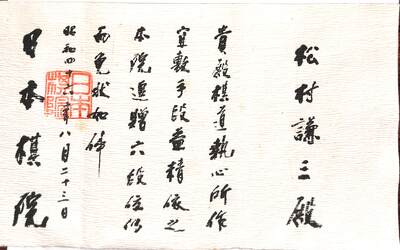 松村謙三殿
貴殿棋道執心所作
宜敷手段益精依之
本院追贈六段位仍
而免状如件
昭和四十六年八月二十三日
日本棋院
日本棋院